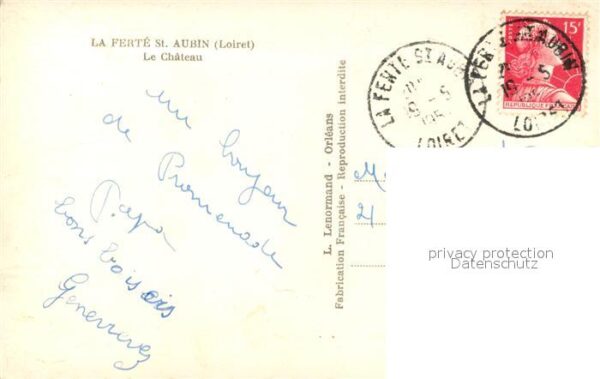 LA FERTÉ St. AUBIN (Loiret)
Le Château
un bonjour
de Promenade
Papa
bons baisers
Genevieve
L. Lenormand - Orléans
Fabrication Française - Reproduction interdite
LA FERTE ST AUBIN
19 - 5
LOIRET
LA FERTE ST AUBIN
19 - 5
LOIRET
15F
REPUBLIQUE FRANÇAISE
M.
21
privacy protection
Datenschutz